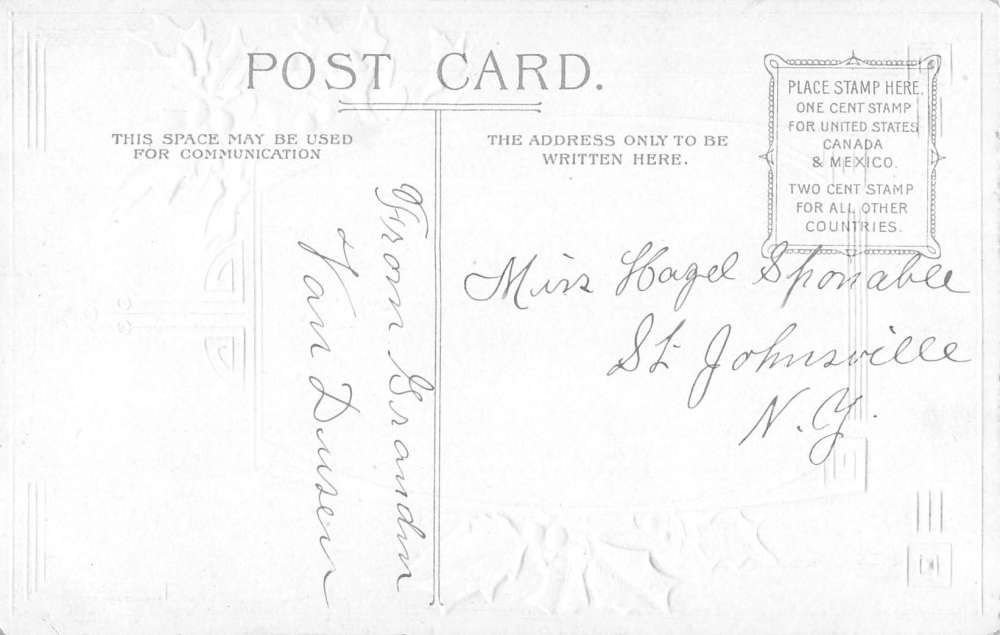 POST CARD.
THIS SPACE MAY BE USED
FOR COMMUNICATION
THE ADDRESS ONLY TO BE
WRITTEN HERE.
PLACE STAMP HERE.
ONE CENT STAMP
FOR UNITED STATES
CANADA
& MEXICO.
TWO CENT STAMP
FOR ALL OTHER
COUNTRIES.
From Grandm
Van Dusen
Miss Hazel Sponable
St Johnsville
N.Y.